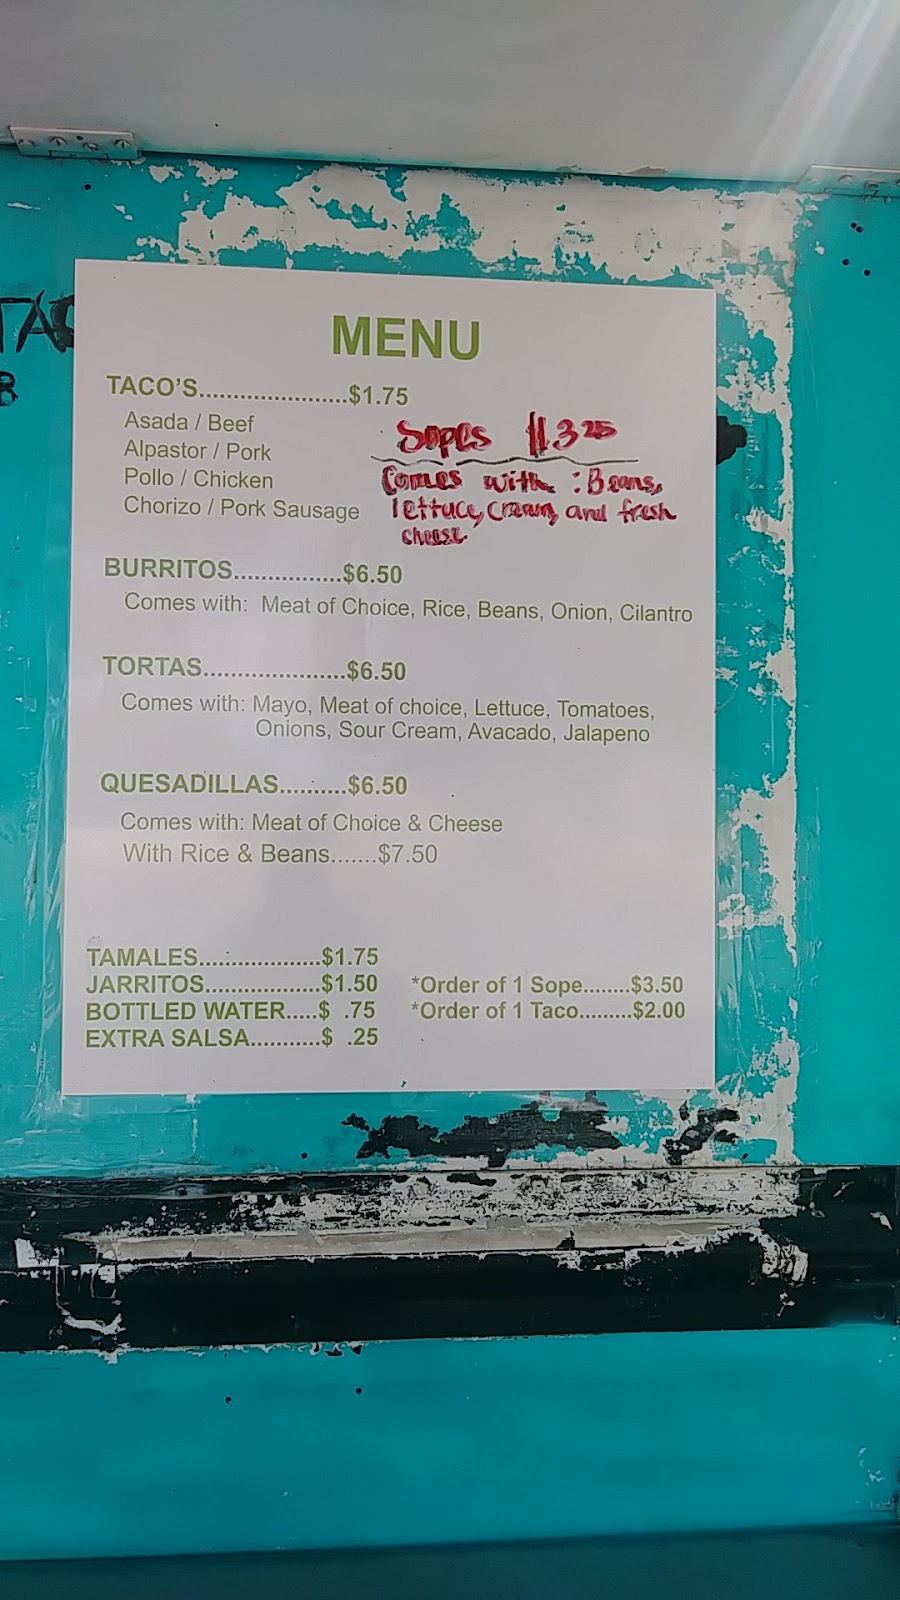 MENU
TACO'S......................$1.75
Asada / Beef
Alpastor / Pork
Pollo / Chicken
Chorizo / Pork Sausage
Sopes $3.25
Comes with : Beans,
lettuce, cream, and fresh
cheese.
BURRITOS................$6.50
Comes with: Meat of Choice, Rice, Beans, Onion, Cilantro
TORTAS.....................$6.50
Comes with: Mayo, Meat of choice, Lettuce, Tomatoes,
Onions, Sour Cream, Avacado, Jalapeno
QUESADILLAS..........$6.50
Comes with: Meat of Choice & Cheese
With Rice & Beans.......$7.50
TAMALES...................$1.75
JARRITOS..................$1.50
BOTTLED WATER.....$ .75
EXTRA SALSA...........$ .25
*Order of 1 Sope........$3.50
*Order of 1 Taco.........$2.00